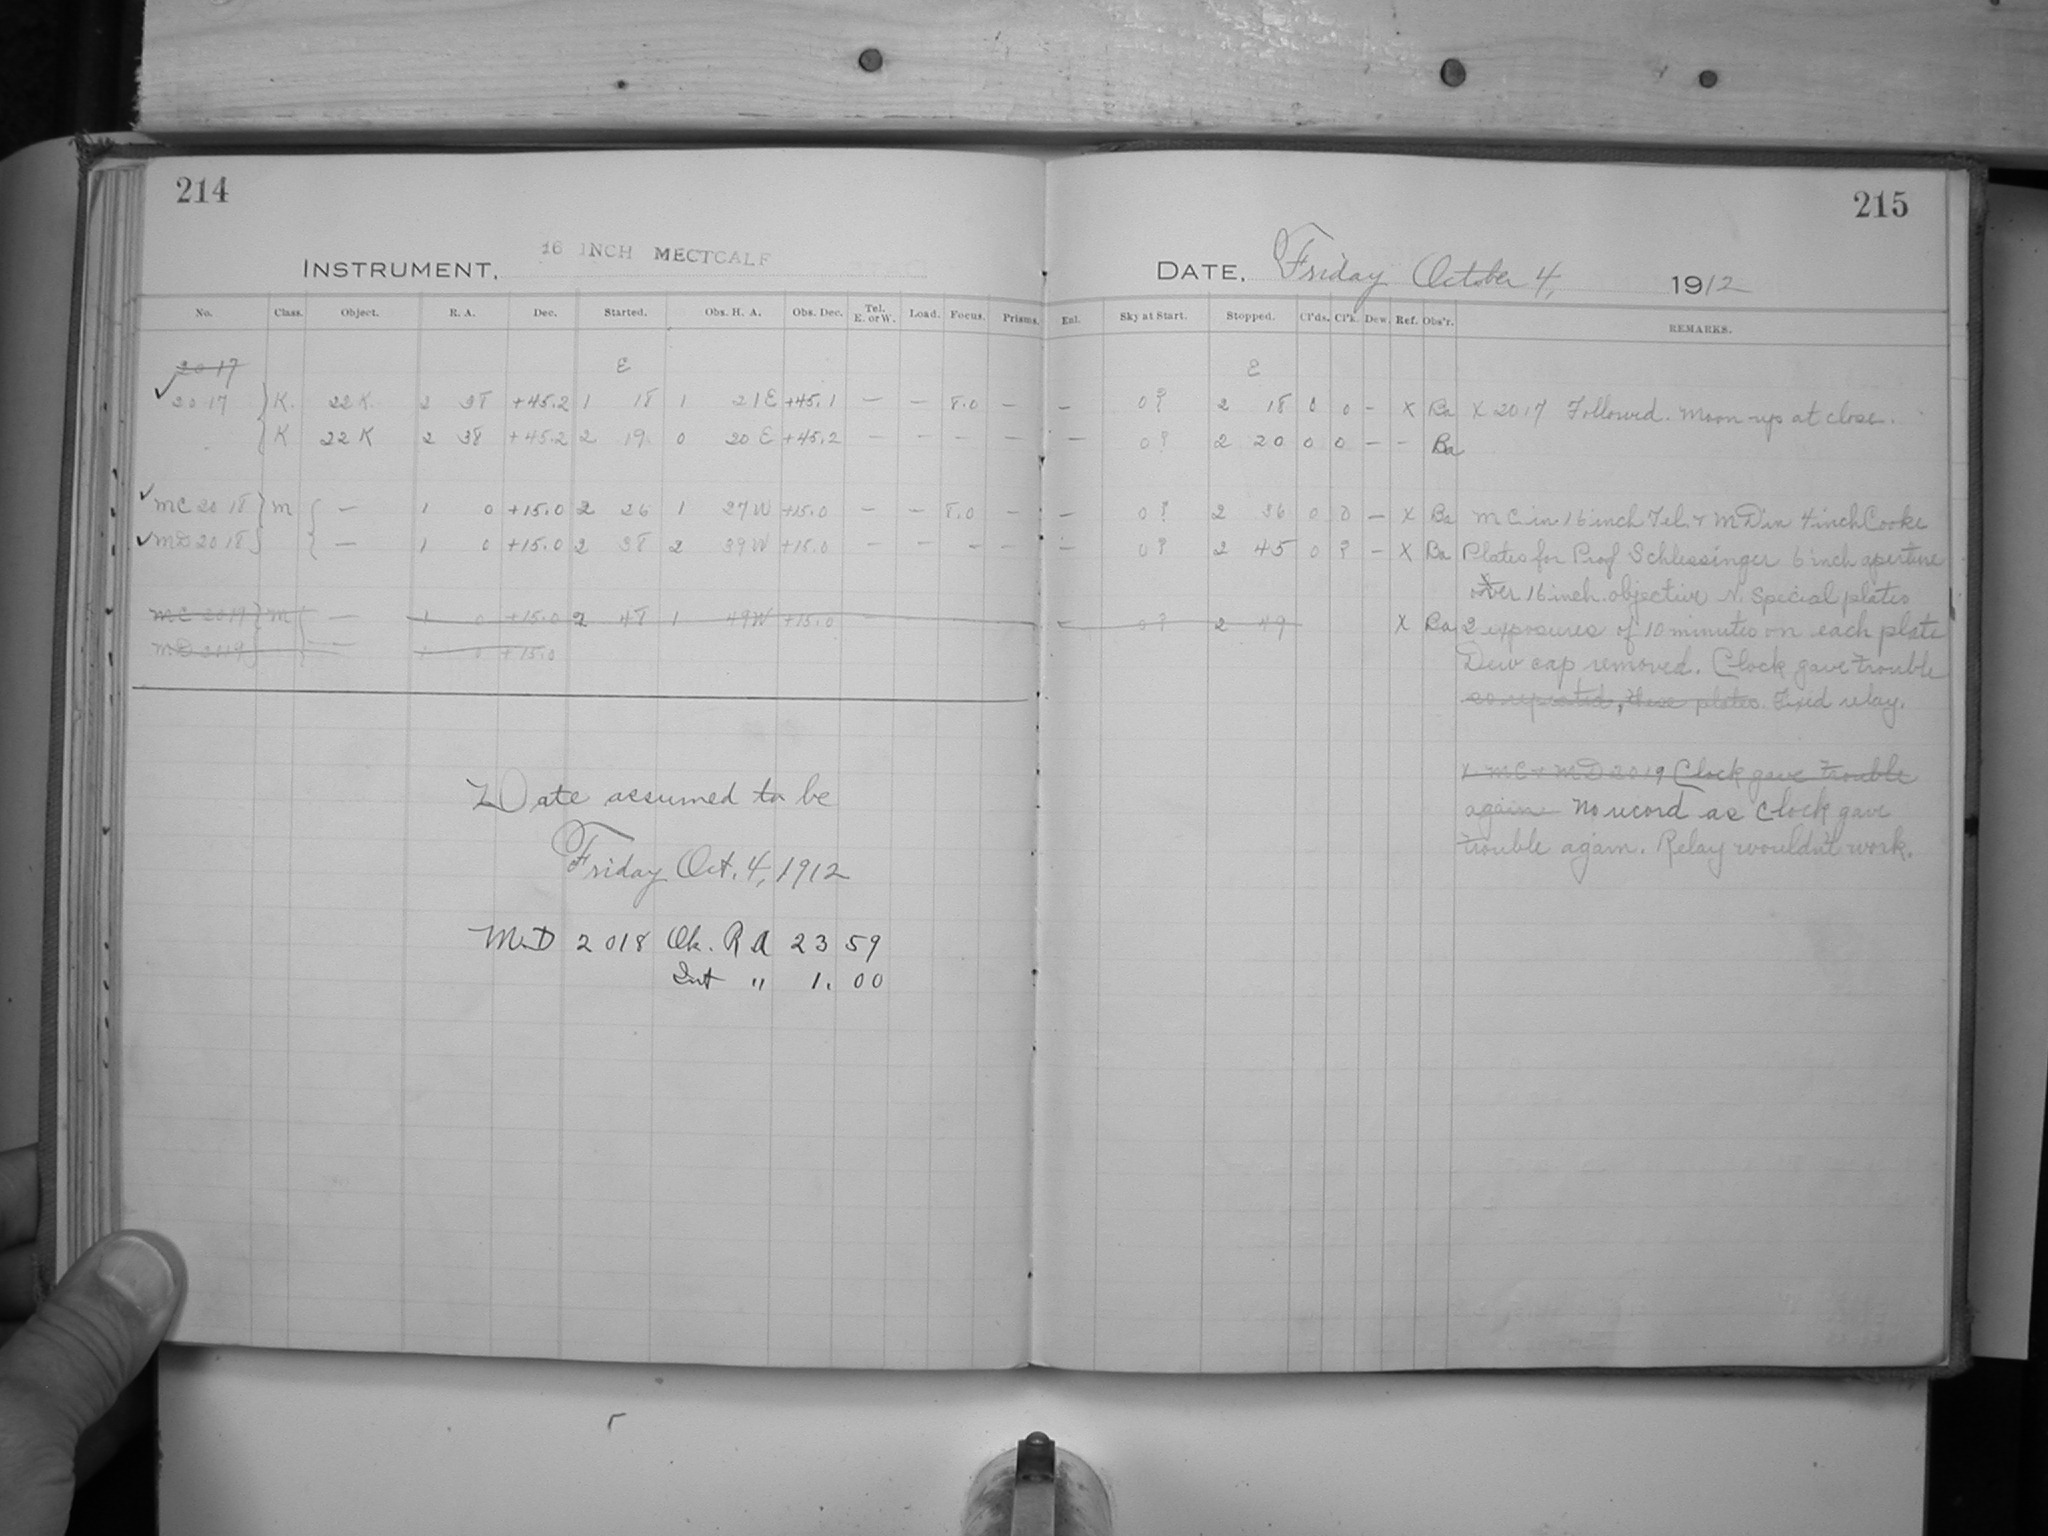 214
215
16 INCH MECTCALF
INSTRUMENT.
DATE. Friday October 4, 1912
No. Class. Object. R. A. Dec. Started. Obs. H. A. Obs. Dec. Tel. E. or W. Load. Focus. Prisms. Enl. Sky at Start. Stopped. Cl'ds. Cl'k. Dew. Ref. Obs'r. REMARKS.
2017 E E
2017 K. 22 K. 2 38 +45.2 1 18 1 21 E +45.1 — — 8.0 — — 0? 2 18 0 0 — X Ba X 2017 Followed. Moon up at close.
K 22 K 2 38 +45.2 2 19 0 20 E +45.2 — — — — — 0? 2 20 0 0 — — Ba
MC 2018 M — 1 0 +15.0 2 26 1 27 W +15.0 — — 8.0 — — 0? 2 36 0 0 — X Ba MC in 16 inch Tel. + MD in 4 inch Cooke
MD 2018 — 1 0 +15.0 2 38 2 39 W +15.0 — — — — — 0? 2 45 0 ? — X Ba Plates for Prof Schlessinger 6 inch aperture
over 16 inch objective N. Special plates
MC 2019 M — 1 0 +15.0 2 48 1 49 W +15.0 — 0? 2 49 X Ba 2 exposures of 10 minutes on each plate
MD 2119 — 1 0 +15.0 Dew cap removed. Clock gave trouble
so repeated, these plates. Fixed relay.
X MC + MD 2019 Clock gave trouble
again No record as Clock gave
trouble again. Relay wouldn't work.
Date assumed to be
Friday Oct. 4, 1912
MD 2018 Ok. R A 23 59
Int " 1. 00